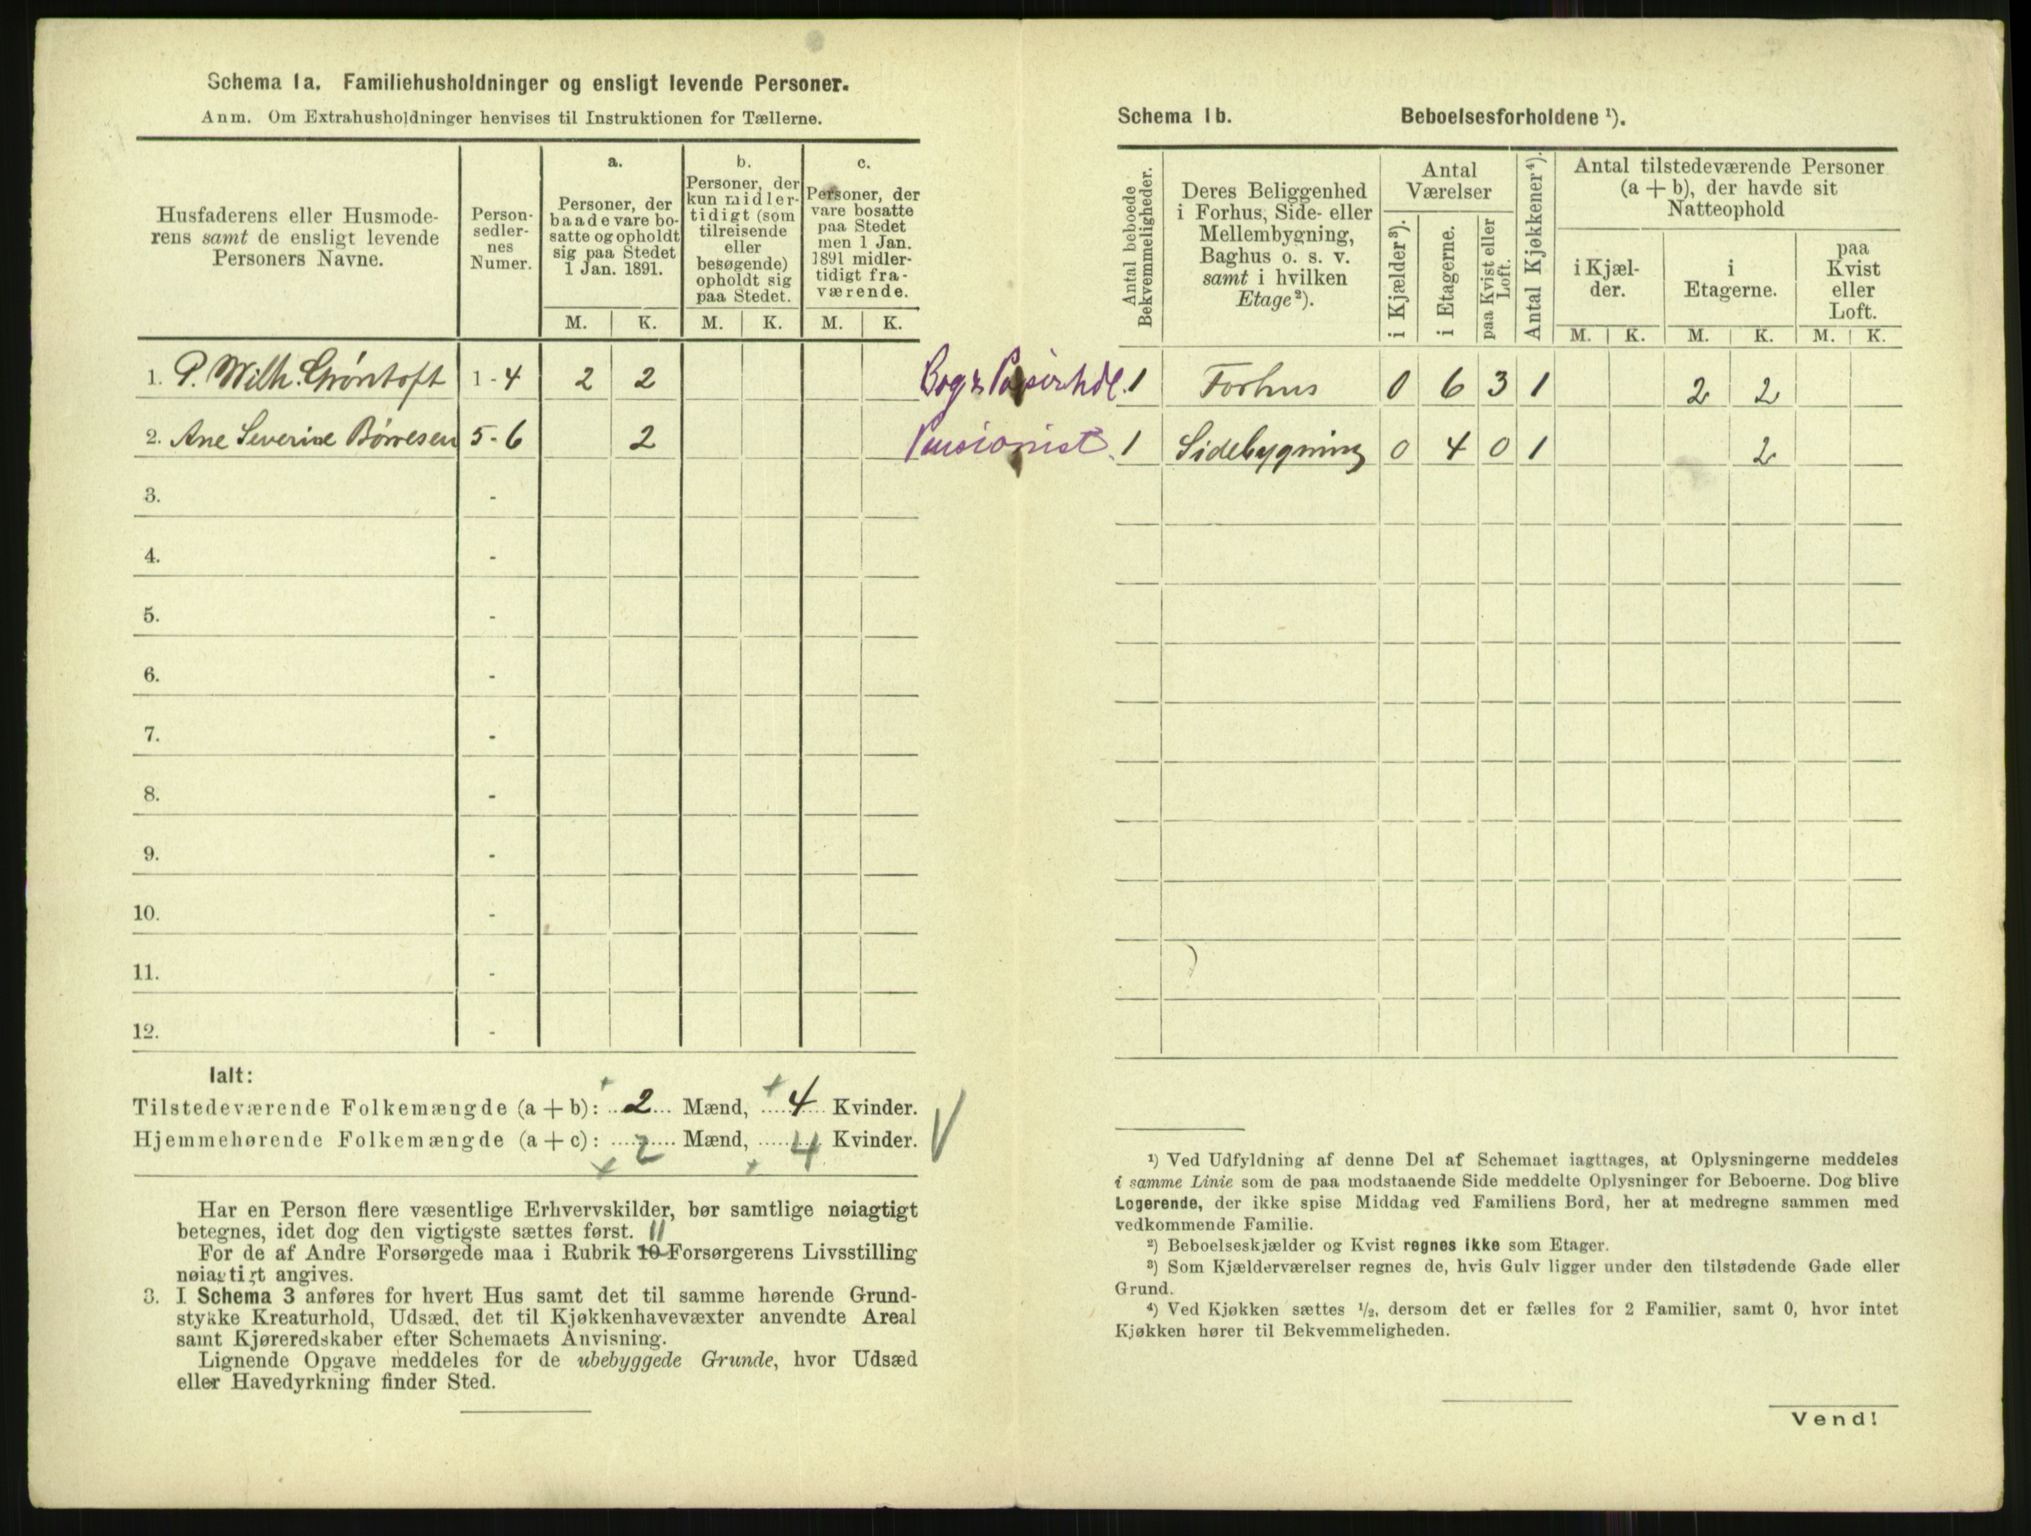 Schema 1a. Familiehusholdninger og ensligt levende Personer.
Anm. Om Extrahusholdninger henvises til Instruktionen for Tællerne.
Husfaderens eller Husmode-
rens samt de ensligt levende
Personers Navne.
Person-
sedler-
nes
Numer.
a.
Personer, der
baade vare bo-
satte og opholdt
sig paa Stedet
1 Jan. 1891.
b.
Personer, der
kun midler-
tidigt (som
tilreisende
eller
besøgende)
opholdt sig
paa Stedet.
c.
Personer, der
vare bosatte
paa Stedet
men 1 Jan.
1891 midler-
tidigt fra-
værende.
M. K. M. K. M. K.
1. P. Wilh. Grøntoft 1 - 4 2 2
2. Ane Severine Børresen 5 - 6 2
3. -
4. -
5. -
6. -
7. -
8. -
9. -
10. -
11. -
12. -
Ialt:
Tilstedeværende Folkemængde (a + b): 2 Mænd, 4 Kvinder.
Hjemmehørende Folkemængde (a + c): 2 Mænd, 4 Kvinder.
Har en Person flere væsentlige Erhvervskilder, bør samtlige nøiagtigt
betegnes, idet dog den vigtigste sættes først. 11
For de af Andre Forsørgede maa i Rubrik 10 Forsørgerens Livsstilling
nøiagtigt angives.
3. I Schema 3 anføres for hvert Hus samt det til samme hørende Grund-
stykke Kreaturhold, Udsæd, det til Kjøkkenhavevæxter anvendte Areal
samt Kjøreredskaber efter Schemaets Anvisning.
Lignende Opgave meddeles for de ubebyggede Grunde, hvor Udsæd
eller Havedyrkning finder Sted.
Schema 1b. Beboelsesforholdene ¹).
Antal beboede
Bekvemmeligheder.
Deres Beliggenhed
i Forhus, Side- eller
Mellembygning,
Baghus o. s. v.
samt i hvilken
Etage²).
Antal
Værelser
i Kjælder³).
i Etagerne.
paa Kvist eller
Loft.
Antal Kjøkkener⁴).
Antal tilstedeværende Personer
(a + b), der havde sit
Natteophold
i Kjæl-
der.
i
Etagerne.
paa
Kvist
eller
Loft.
M. K. M. K. M. K.
Bog & Papirhdl. 1 Forhus 0 6 3 1 2 2
Pensionist. 1 Sidebygning 0 4 0 1 2
¹) Ved Udfyldning af denne Del af Schemaet iagttages, at Oplysningerne meddeles
i samme Linie som de paa modstaaende Side meddelte Oplysninger for Beboerne. Dog blive
Logerende, der ikke spise Middag ved Familiens Bord, her at medregne sammen med
vedkommende Familie.
²) Beboelseskjælder og Kvist regnes ikke som Etager.
³) Som Kjælderværelser regnes de, hvis Gulv ligger under den tilstødende Gade eller
Grund.
⁴) Ved Kjøkken sættes ½, dersom det er fælles for 2 Familier, samt 0, hvor intet
Kjøkken hører til Bekvemmeligheden.
Vend!